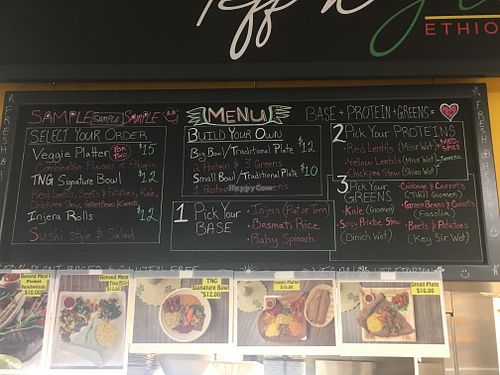 Teff n
ETHIO
SAMPLE SAMPLE SAMPLE
SELECT YOUR ORDER
Veggie Platter FOR TWO $15
TNG Signature Bowl $12
Red Lentils, Beets & Potatoes, Kale,
Chickpea Stew, Green Beans & Carrots
Injera Rolls $12
Sushi Style & Salad
MENU
BUILD YOUR OWN
Big Bowl/Traditional Plate $12
2 Proteins & 3 Greens
Small Bowl/Traditional Plate $10
1 Protein
1 Pick Your
BASE
Injera (Flat or Torn)
Basmati Rice
Baby Spinach
BASE + PROTEIN + GREENS =
2 Pick Your PROTEINS
Red Lentils (Misir Wot) MED-SPICY
Yellow Lentils (Kik Wot) TURMERIC
Chickpea Stew (Shiro Wot)
3 Pick Your
GREENS
Kale (Gomen)
(Dinich Wot)
Cabbage & Carrots
(Tikil Gomen)
Green Beans & Carrots
(Fasolia)
Beets & Potatoes
(Key Sir Wot)
FRESH
FRESH
HappyCow
Beyond Meat
$10.00
Beyond Meat
TNG
Signature Bowl
$12.00
$15.00
Small Plate
$10.00